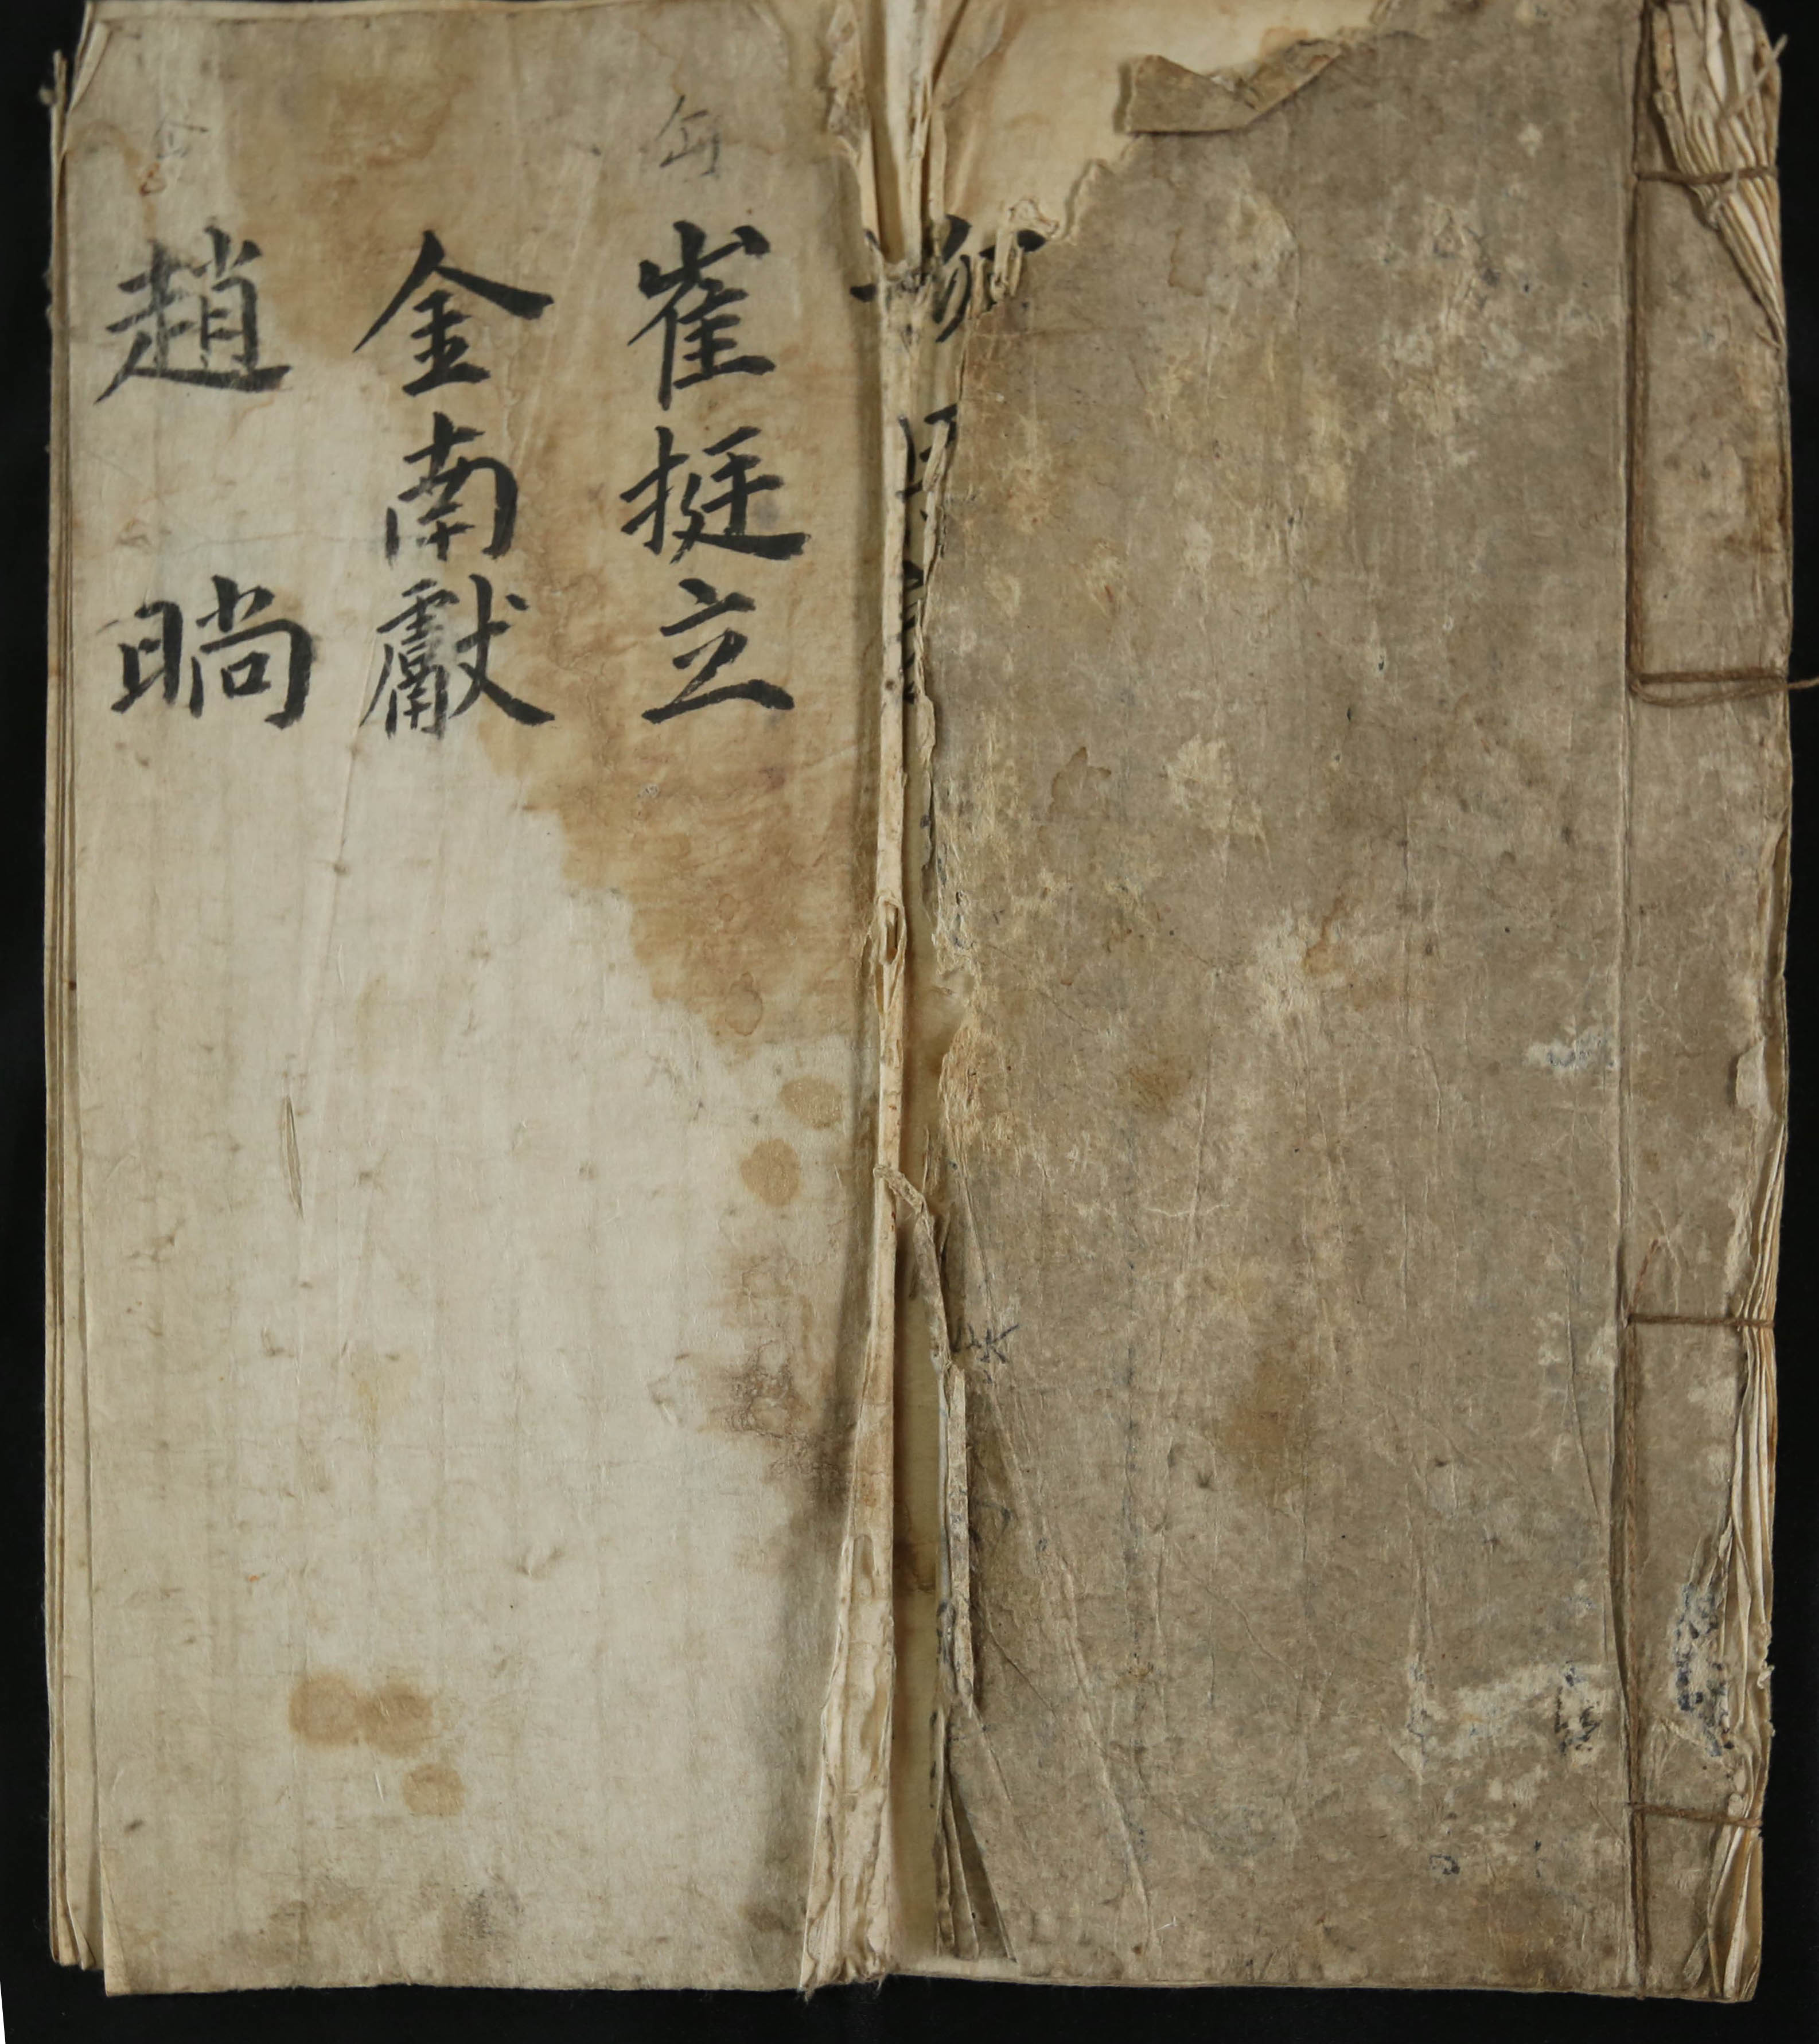 崔挺立
金南獻
趙晌